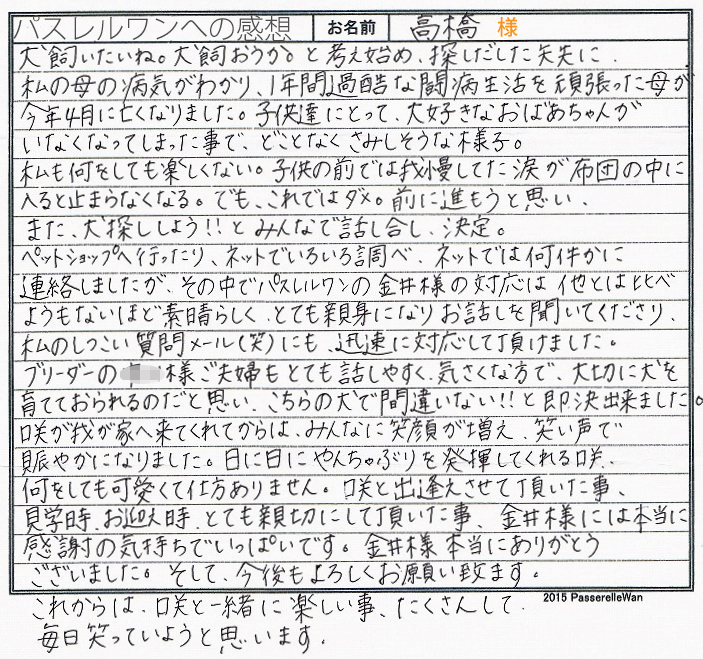 パスレルワンへの感想 お名前 高橋 様
犬飼いたいね。犬飼おうか。と考え始め、探しだした矢先に
私の母の病気がわかり、1年間過酷な闘病生活を頑張った母が
今年4月に亡くなりました。子供達にとって、大好きなおばあちゃんが
いなくなってしまった事で、どことなくさみしそうな様子。
私も何をしても楽しくない。子供の前では我慢してた涙が布団の中に
入ると止まらなくなる。でも、これではダメ。前に進もうと思い、
また、犬探ししよう!!とみんなで話し合し、決定。
ペットショップへ行ったり、ネットでいろいろ調べ、ネットでは何件かに
連絡しましたが、その中でパスレルワンの金井様の対応は他とは比べ
ようもないほど素晴らしく、とても親身になりお話しを聞いてくださり、
私のしつこい質問メール(笑)にも、迅速に対応して頂けました。
ブリーダーの 様ご夫婦もとても話しやすく、気さくな方で、大切に犬を
育てておられるのだと思い、こちらの犬で間違いない!!と即決出来ました。
咲が我が家へ来てくれてからは、みんなに笑顔が増え、笑い声で
賑やかになりました。日に日にやんちゃぶりを発揮してくれる咲、
何をしても可愛くて仕方ありません。咲と出逢えさせて頂いた事、
見学時、お迎え時、とても親切にして頂いた事、金井様には本当に
感謝の気持ちでいっぱいです。金井様本当にありがとう
ございました。そして、今後もよろしくお願い致ます。
2015 PasserelleWan
これからは、咲と一緒に楽しい事、たくさんして、
毎日笑っていようと思います。